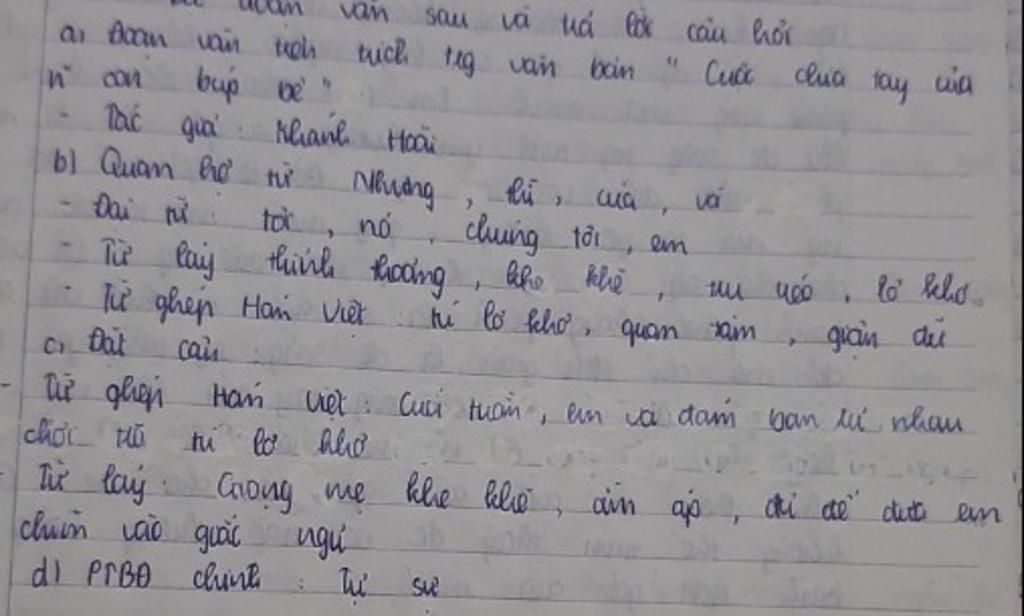 đoạn văn sau và trả lời câu hỏi
a) Đoạn văn trích trích trg văn bản " Cuộc chia tay của
n~ con búp bê"
- Tác giả : Khánh Hoài
b) Quan hệ từ Nhưng, thì, của, và
- Đại từ : tôi, nó, chúng tôi, em
- Từ láy thỉnh thoảng, khe khẽ, , lơ khơ.
- Từ ghép Hán Việt : tú lơ khơ, quan tâm, giận dữ
c) Đặt câu :
- Từ ghép Hán Việt : Cuối tuần, em và đám bạn nhau
chơi trò tú lơ khơ
- Từ láy : Giọng mẹ khe khẽ, ấm áp, đủ để đưa em
chìm vào giấc ngủ
d) PTBĐ chính : Tự sự